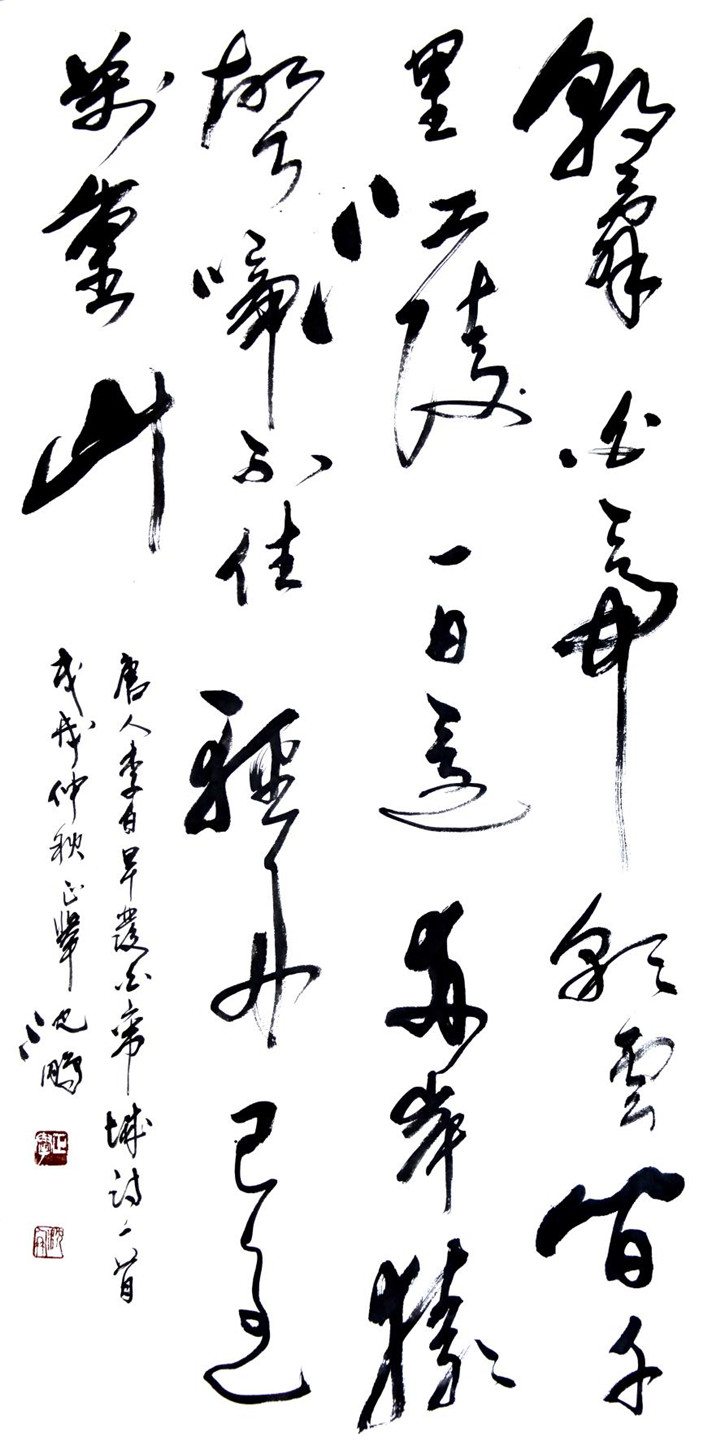 朝辭白帝彩雲間千
里江陵一日還兩岸猿
聲啼不住輕舟已過
萬重山
唐人李白早發白帝城詩一首
戊戌仲秋 沈鵬